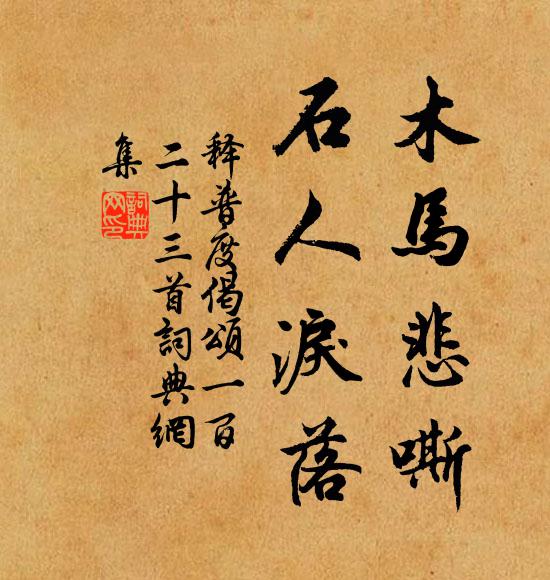 木馬悲嘶
石人淚落
释普度偈頌一百
二十三首詞典網
集
詞典
网印